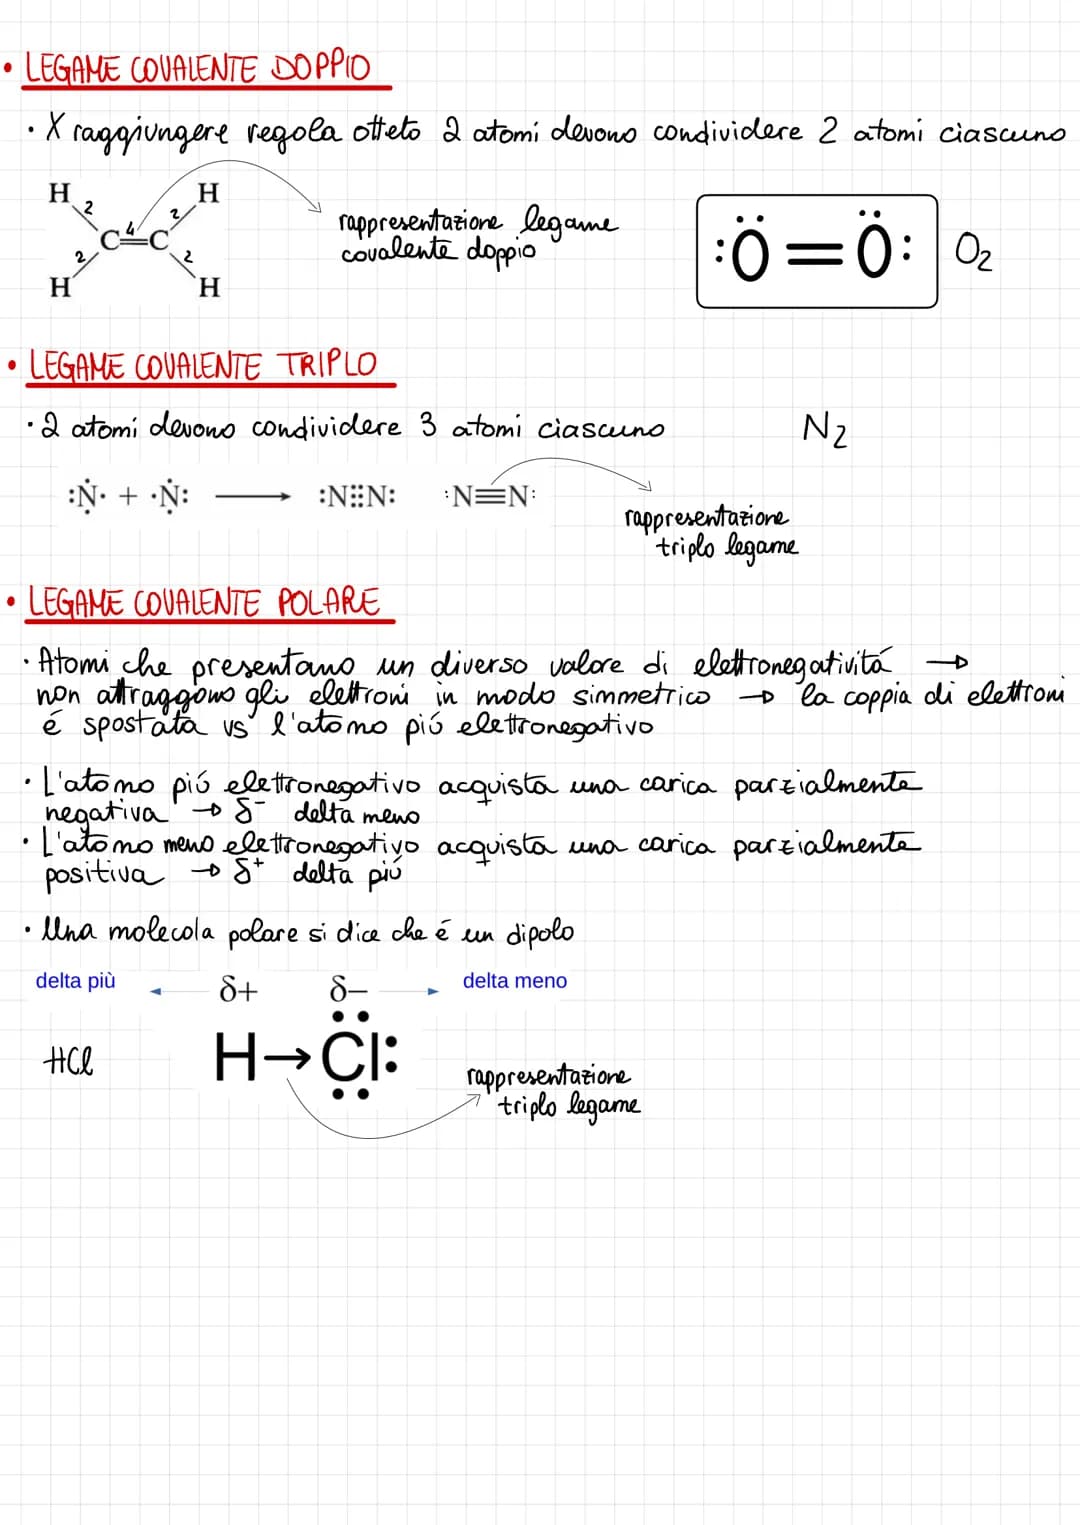 • LEGAME COVALENTE DOPPIO
· X raggiungere regola otteto 2 atomi devono condividere 2 atomi ciascuno
H 2 2 H
C 4 C
2 2
H H
rappresentazione legame
covalente doppio
:Ö=Ö: O2
• LEGAME COVALENTE TRIPLO
· 2 atomi devono condividere 3 atomi ciascuno
N2
:Ṇ̇· + ·Ṇ̇: ⟶ :N⋮⋮N: :N≡N:
rappresentazione
triplo legame
• LEGAME COVALENTE POLARE
· Atomi che presentano un diverso valore di elettronegativitá →
non attraggono gli elettroni in modo simmetrico → la coppia di elettroni
é spostata vs l'atomo piú elettronegativo
· L'atomo piú elettronegativo acquista una carica parzialmente
negativa → δ⁻ delta meno
· L'atomo meno elettronegativo acquista una carica parzialmente
positiva → δ⁺ delta piú
· Una molecola polare si dice che é un dipolo
delta più δ+ δ− delta meno
HCl H→Cl:
rappresentazione
triplo legame